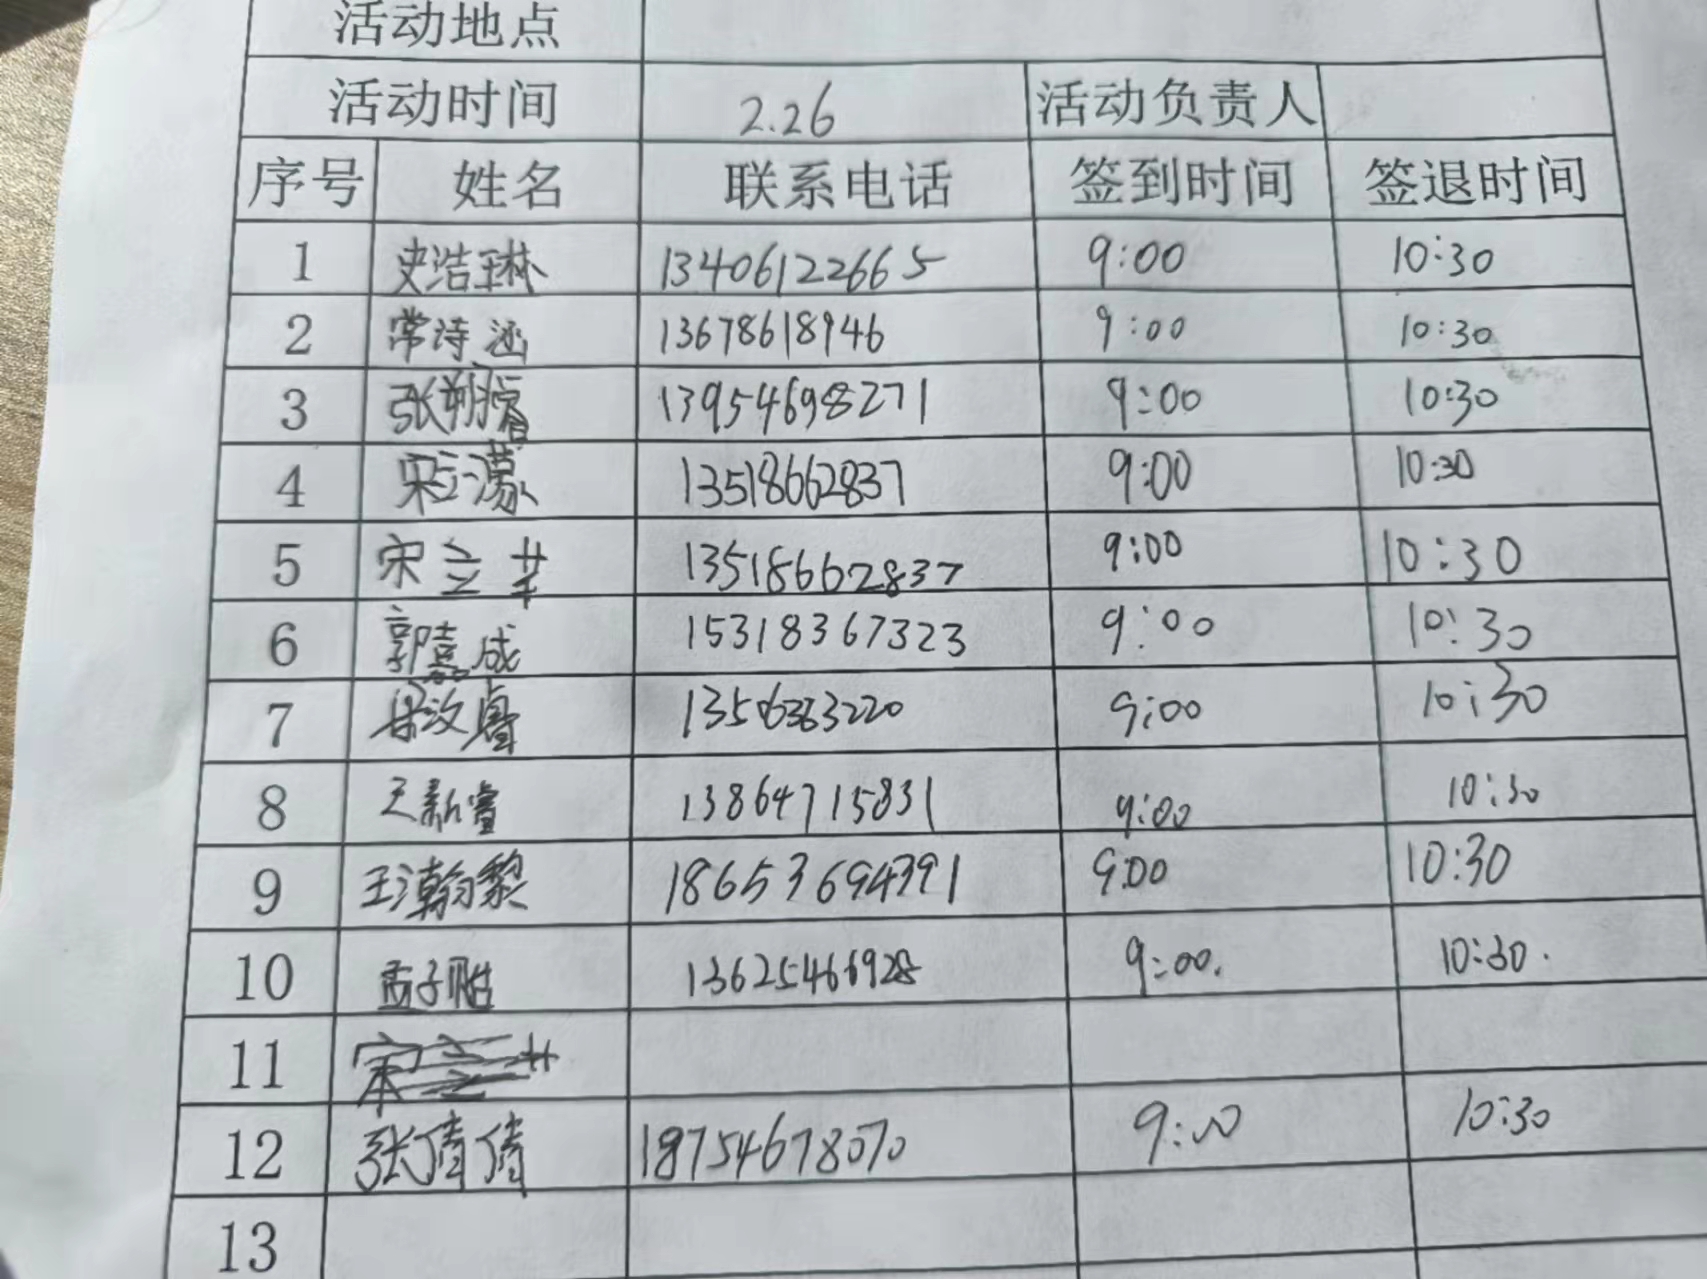 活动地点
活动时间 2.26 活动负责人
序号 姓名 联系电话 签到时间 签退时间
1 史浩琳 13406122665 9:00 10:30
2 常诗涵 13678618946 9:00 10:30
3 张 13954698271 9:00 10:30
4 宋立濛 13518662837 9:00 10:30
5 宋立 13518662837 9:00 10:30
6 郭嘉成 15318367323 9:00 10:30
7 梁汶睿 9:00 10:30
8 王新睿 13864715831 9:00 10:30
9 王瀚黎 18653694391 9:00 10:30
10 孟子 13625466928 9:00. 10:30.
11
12 张倩倩 18754678070 9:00 10:30
13